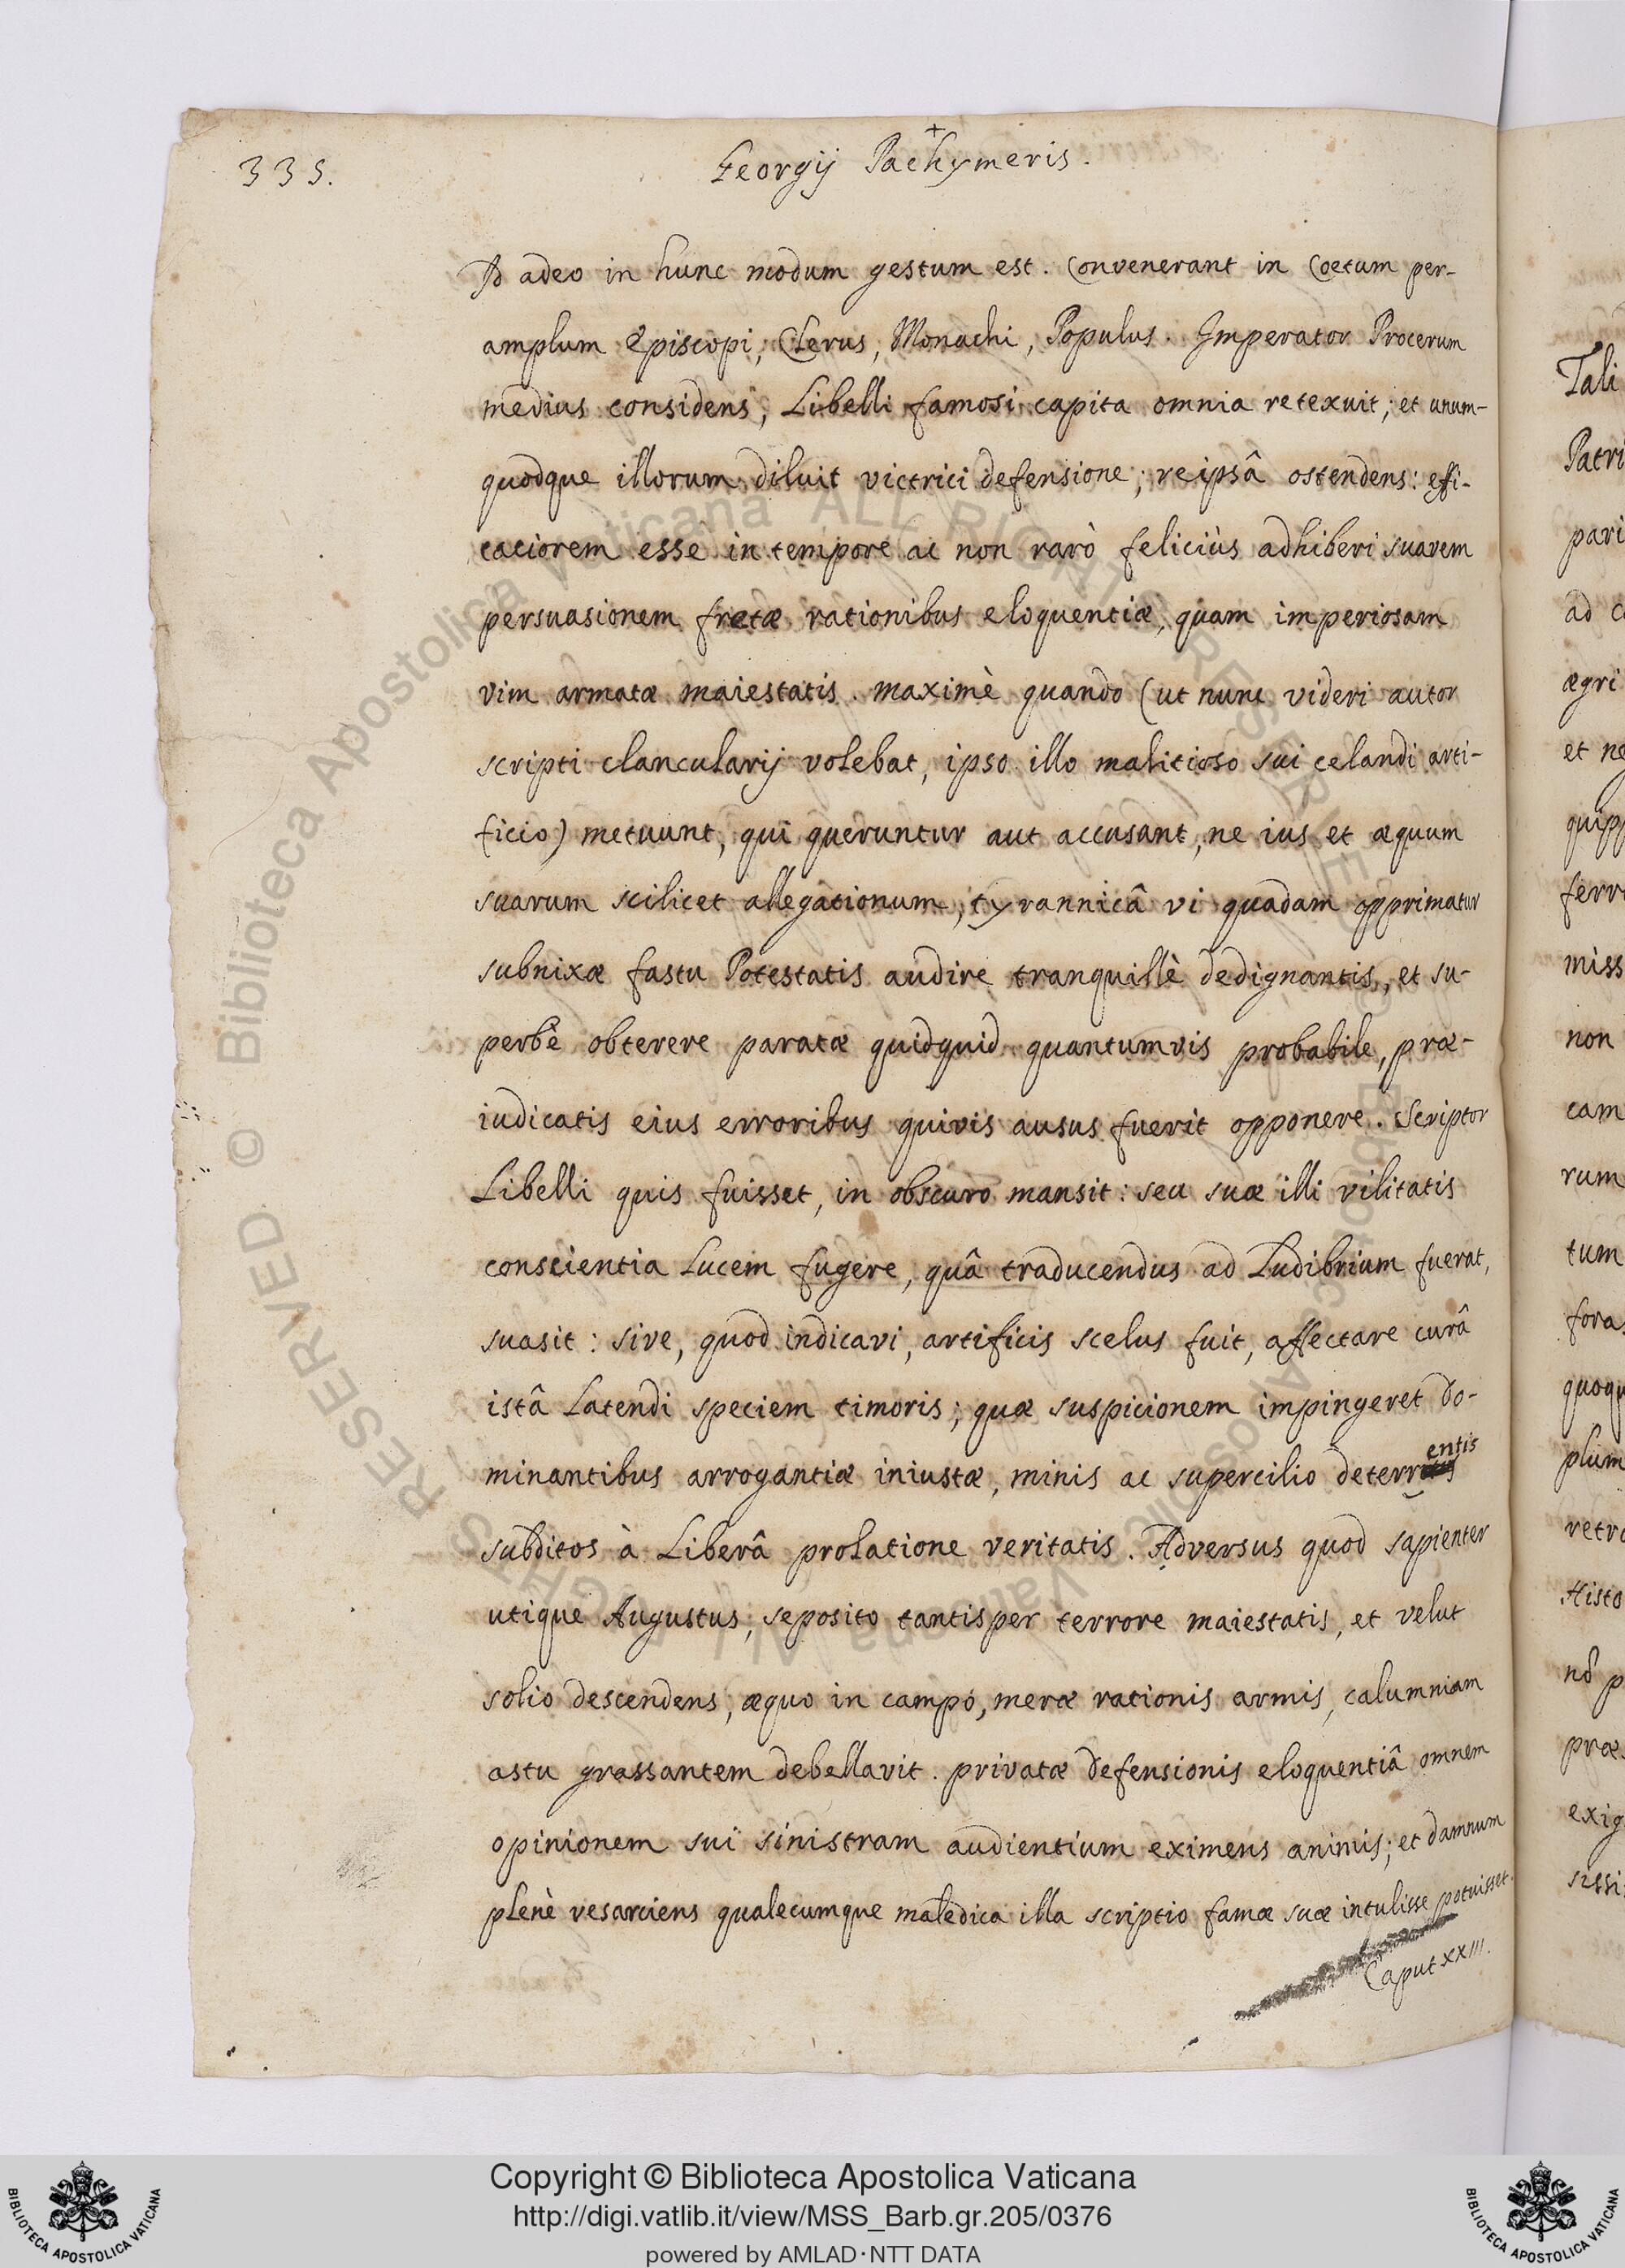 335.
Georgij Pachymeris.
Id adeo in hunc modum gestum est. Convenerant in Coetum per-
amplum Episcopi, Clerus, Monachi, Populus. Imperator Procerum
medius considens, Libelli famosi capita omnia retexuit; et unum-
quodque illorum diluit victrici defensione; reipsâ ostendens: effi-
caciorem esse in tempore ac non rarò feliciùs adhiberi suavem
persuasionem fretæ rationibus eloquentiæ, quam imperiosam
vim armatæ maiestatis. maximè quando (ut nunc videri autor
scripti clancularij volebat, ipso illo malitioso sui celandi arti-
ficio) metuunt, qui queruntur aut accusant, ne ius et æquum
suarum scilicet allegationum, tyrannicâ vi quadam opprimatur
subnixæ fastu Potestatis audire tranquillè dedignantis, et su-
perbè obterere paratæ quidquid quantumvis probabile, præ-
iudicatis eius erroribus quivis ausus fuerit opponere. Scriptor
Libelli quis fuisset, in obscuro mansit: seu suæ illi vilitatis
conscientia Lucem fugere, quâ traducendus ad Ludibrium fuerat,
suasit: sive, quod indicavi, artificis scelus fuit, affectare curâ
istâ Latendi speciem timoris; quæ suspicionem impingeret do-
minantibus arrogantiæ iniustæ, minis ac supercilio deterrentis
subditos à Liberâ prolatione veritatis. Adversus quod sapienter
utique Augustus, seposito tantisper terrore maiestatis, et velut
solio descendens, æquo in campo, meræ rationis armis, calumniam
astu grassantem debellavit. privatæ defensionis eloquentiâ omnem
opinionem sui sinistram audientium eximens animis; et damnum
plenè resarciens qualecumque maledica illa scriptio famæ suæ intulisse potuisset.
Caput XXIII.
Tali
Patri
pari
ad c
ægri
et ne
quipp
ferr
miss
non
cam
rum
tum
fora
quoqu
plum
retro
Histo
præ
exig
sissi
© Biblioteca Apostolica Vaticana ALL RIGHTS RESERVED
Copyright © Biblioteca Apostolica Vaticana
http://digi.vatlib.it/view/MSS_Barb.gr.205/0376
powered by AMLAD·NTT DATA
BIBLIOTECA APOSTOLICA VATICANA
BIBLIOTECA APOSTOLICA VATICANA